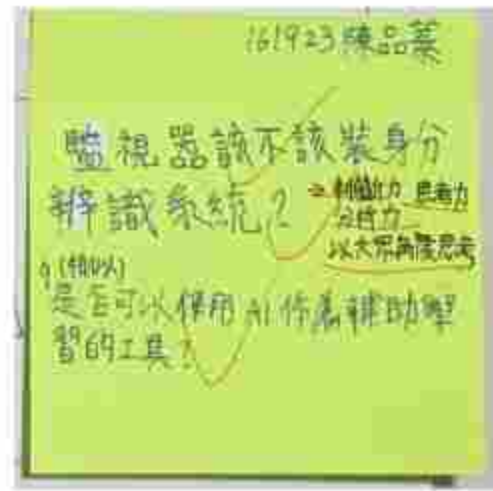 161923 陳品蓁
監視器該不該裝身分
辨識系統? → 判斷力 思考力
公信力
以大眾角度思考
(類似)
是否可以使用AI作為輔助學
習的工具?